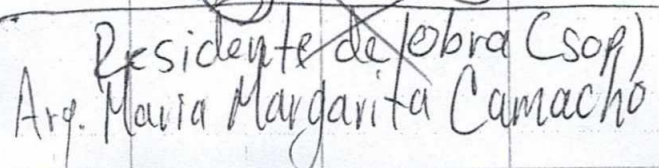 Residente de Obra (SOP)
Arq. Maria Margarita Camacho